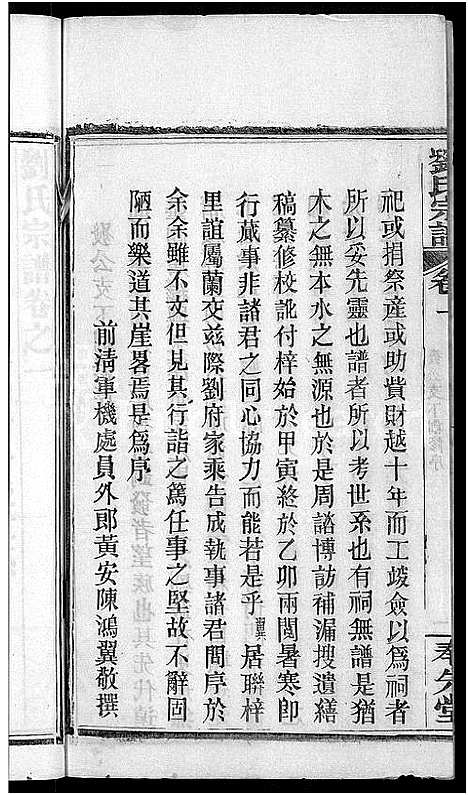 劉氏宗譜
卷一
奉先堂
祀或捐祭産或助費財越十年而工竣僉以爲祠者
所以妥先靈也譜者所以考世系也有祠無譜是猶
木之無本水之無源也於是周諮博訪補漏搜遺繕
稿纂修校訛付梓始於甲寅終於乙卯兩閲暑寒卽
行蕆事非諸君之同心協力而能若是乎翼居聯梓
里誼屬蘭交兹際劉府家乘告成執事諸君問序於
余余雖不文但見其行詣之篤任事之堅故不辭固
陋而樂道其崖畧焉是爲序
前清軍機處員外郎黃安陳鴻翼敬撰